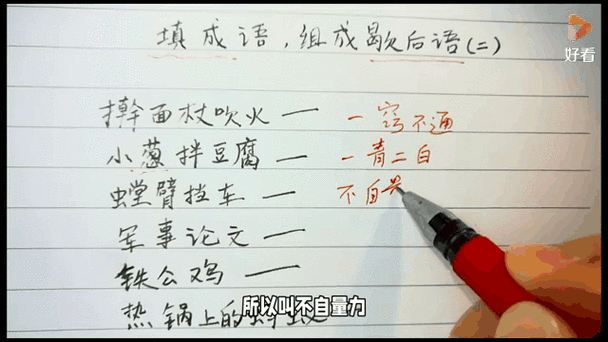 好看
填成语,组成歇后语(二)
擀面杖吹火一 一窍不通
小葱拌豆腐一 一青二白
螳臂挡车一 不自量
军事论文一
铁公鸡一
热锅上的蚂蚁
所以叫不自量力